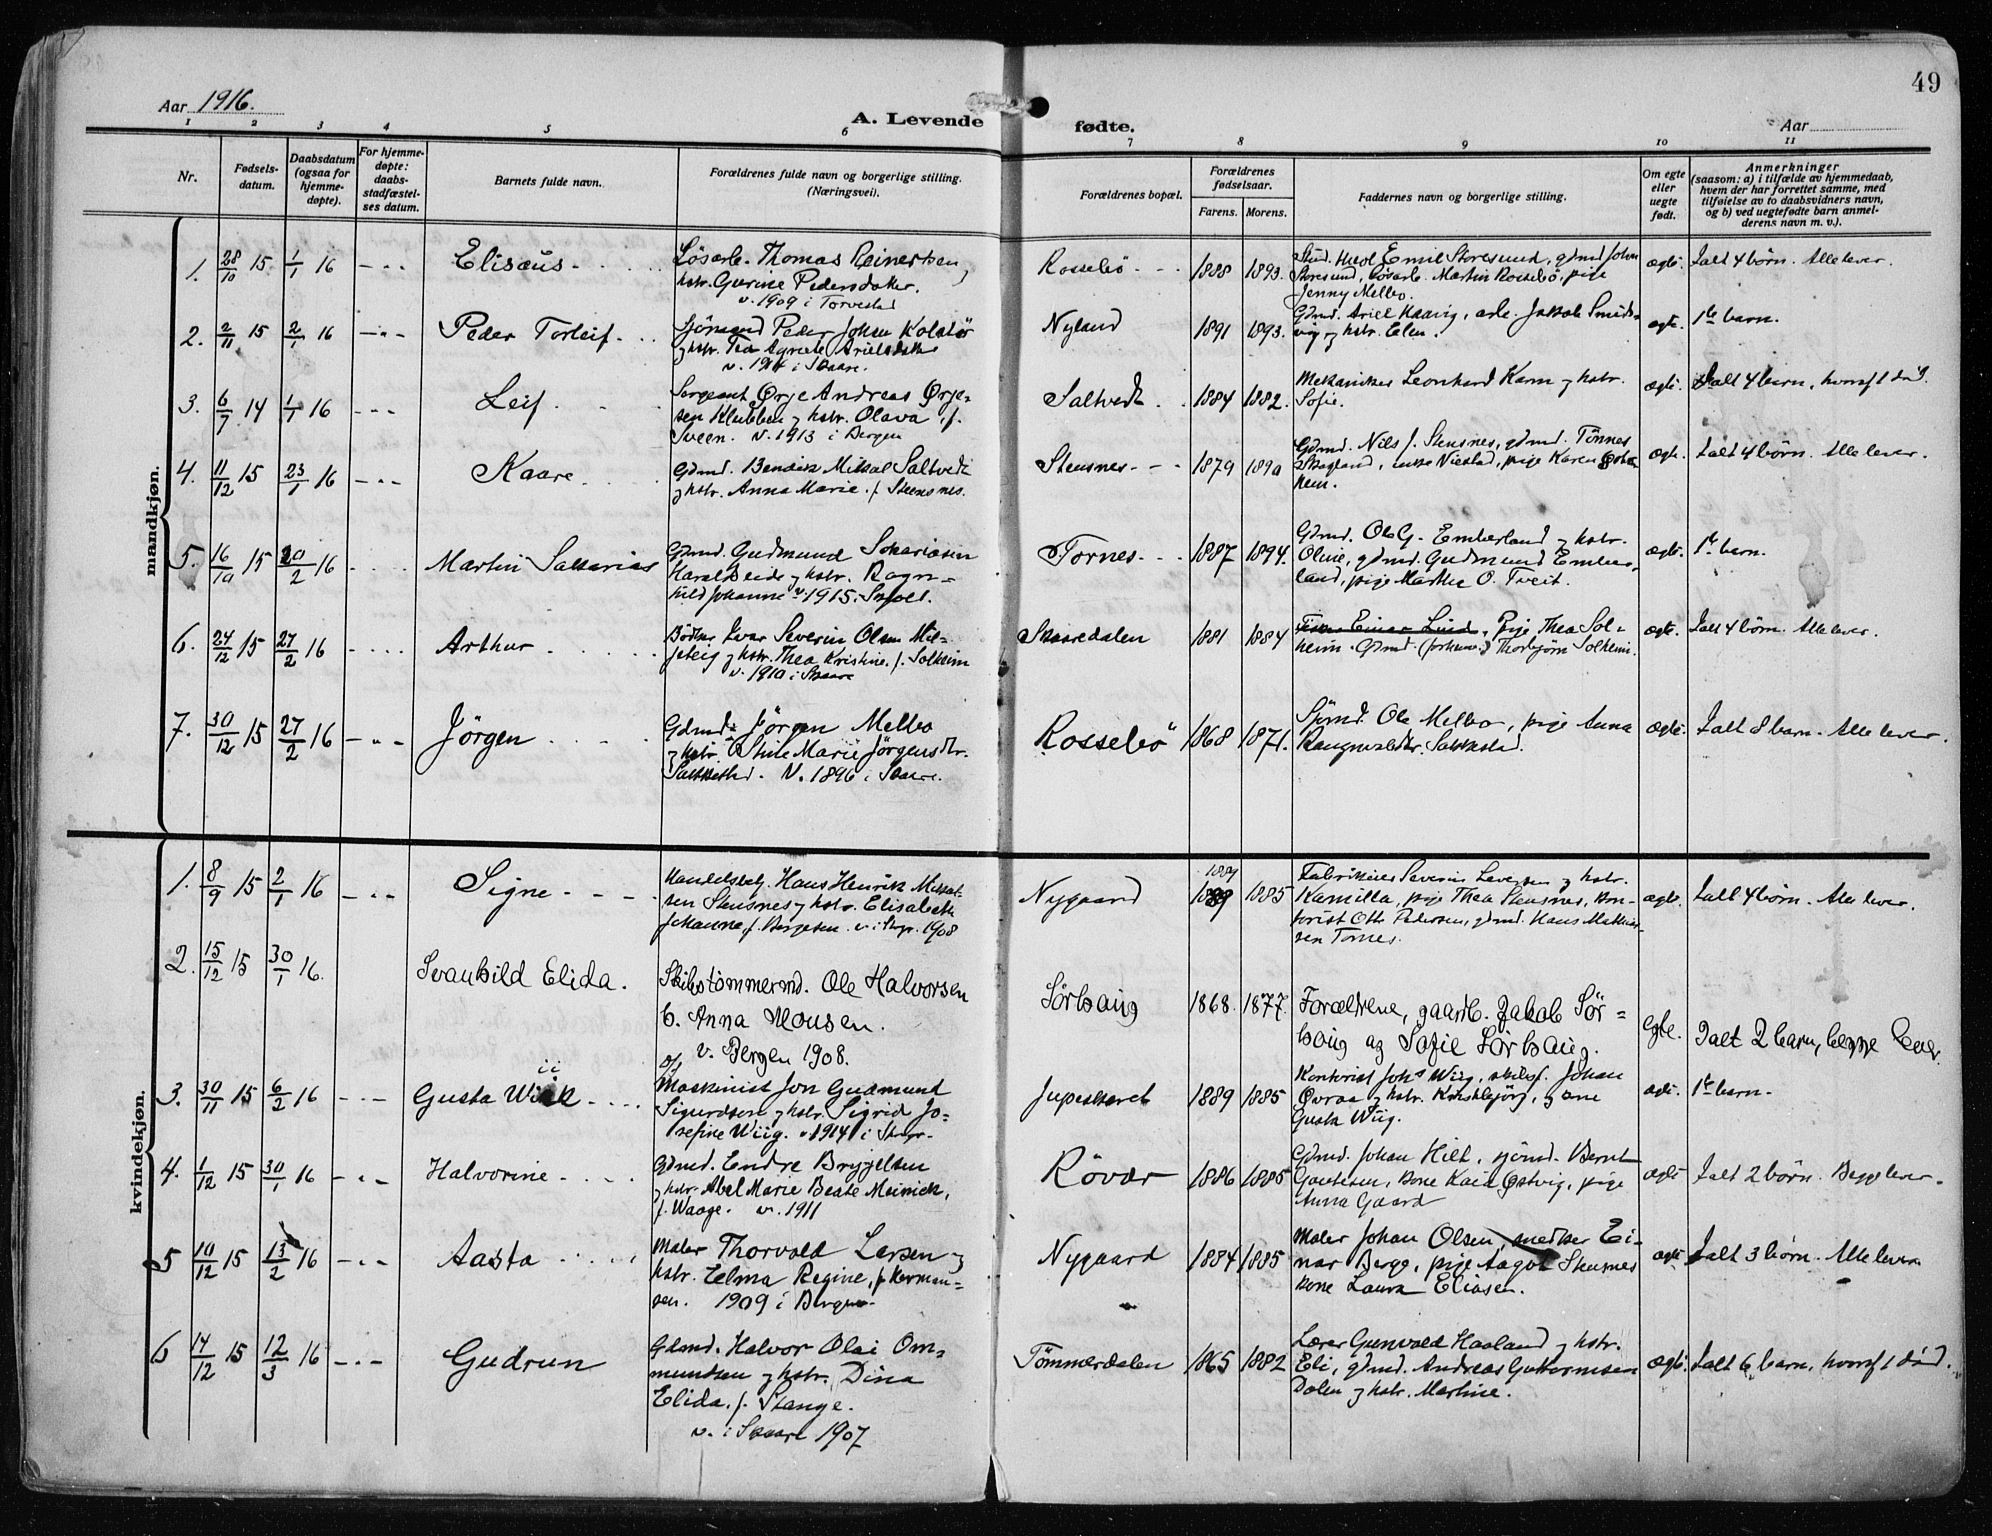 49
Aar 1916.
A. Levende fødte.
Aar
1 2 3 4 5 6 7 8 9 10 11
Nr.
Fødsels-
datum.
Daabsdatum
(ogsaa for
hjemme-
døpte).
For hjemme-
døpte:
daabs-
stadfæstel-
ses datum.
Barnets fulde navn.
Forældrenes fulde navn og borgerlige stilling.
(Næringsvei).
Forældrenes bopæl.
Forældrenes
fødselsaar.
Farens. Morens.
Faddernes navn og borgerlige stilling.
Om egte
eller
uegte
født.
Anmerkninger
(saasom: a) i tilfælde av hjemmedaab,
hvem der har forrettet samme, med
tilføielse av to daabsvidners navn,
og b) ved uegtefødte barn anmel-
derens navn m. v.).
mandkjøn.
1. 28/10 15 1/1 16 - " - Elisæus
Løsarb. Thomas Reinertsen,
hstr. Gurine Pedersdatter.
v. 1909 i Torvestad
Rossebö 1888 1893.
Stud. theol Emil Storesund, gdmd John
Storesund, løsarb. Martin Rossebö, pige
Jenny Melbo.
ægte. Ialt 4 börn. Alle lever.
2. 2/11 15 2/1 16 - " - Peder Torleif
Sjömand Peder Johan Kolstör
og hstr. Tea Agnete Arielsdatter
v. 1914 i Skaare.
Nyland 1891 1893.
Gdmd. Ariel Haavig, arb. Jakob Smids-
vig og hstr. Elen.
ægte. 1te barn.
3. 6/7 14 1/1 16 - " - Leif
Sergeant Ørje Andreas Ørje-
sen Klubben og hstr. Olava, f.
Sveen. v. 1913 i Bergen
Saltvedt 1884 1882.
Mekaniker Leonhard Karm og hstr.
Sofie.
ægte. Ialt 4 barn, hvoraf 1 død.
4. 11/12 15 23/1 16 - " - Kaare
Gdmd. Bendik Mikal Saltvedt
og hstr. Anna Marie. f. Stensnes.
Stensnes 1879 1890
Gdmd. Nils J. Stensnes, gdmd. Tönnes
Skagland, enke Niestad, pige Karen
heim.
ægte. Ialt 4 börn. Alle lever.
5. 16/10 15 20/2 16 Martin Sakarias
Gdmd. Gudmund Sakariasen
Haraldseide og hstr. Ragn-
hild Johanne v. 1915. Skjold.
Tornes 1887 1894.
Gdmd. Ole G. Emberland og hstr.
Oline, gdmd. Gudmund Ember-
land, pige Marthe O. Tveit.
ægte. 1te barn.
6. 24/12 15 27/2 16 Arthur
Bødker Ivar Severin Olsen Mel-
og hstr. Thea Kristine. f. Solheim
v. 1910 i Skaare
Skaaredalen 1881 1884
Einar Lind, pige Thea Sol-
heim. Gdmd. Thorbjörn Solheim.
ægte. Ialt 4 börn. Alle lever.
7. 30/12 15 27/2 16 - " - Jörgen
Gdmd. Jörgen Melbo
og hstr. Stine Marie Jörgensdtr.
Sakkestad. v. 1896 i Skaare.
Rossebö 1868 1871.
Sjömd. Ole Melbo, pige Anna
Rangnvaldsdtr. Sakkestad.
ægte. Ialt 8 barn. Alle lever.
kvindekjøn.
1. 8/9 15 2/1 16 - " - Signe
Handelsbetj. Hans Henrik Mikkel-
sen Stensnes og hstr. Elisabeth
Johanne, f. Børgesen. v. i Skgr. 1908
Nygaard 1889 1885
Fabrikeier Severin Levesen og hstr.
Kamilla, pige Thea Stensnes, kon-
torist Otto Pedersen, gdmd. Hans Mathias-
sen Tornes.
ægte. Ialt 4 börn. Alle lever.
2. 15/12 15 30/1 16. Svanhild Elida.
Skibstømmermd. Ole Halvorsen
o. Anna Monsen.
v. Bergen 1908.
Sörhaug 1868. 1877.
Forældrene, gaardb. Jakob Sör-
haug og Sofie Sörhaug.
egte. Ialt 2 barn, begge lever.
3. 30/11 15 6/2 16 - " - Gusta Wiik
ii
Maskinist Jon Gudmund
Sigurdsen og hstr. Sigrid Jo-
sefine Wiig. v 1914 i Skgr.
Jupeskaret 1889 1885
Kontorist Johs Wiig, skibsf. Johan
Övraa og hstr. Krishbjörg, kone
Gusta Wiig.
ægte. 1te barn.
4. 1/12 15 30/1 16 - " - Halvorine
Gdmd. Endre Bryggelsen
og hstr. Abel Marie Beate Meinich,
f. Waage. v. 1911
Rövær 1886 1885
Gdmd. Johan Hilt, sjömd. Bernt
Gautesen, kone Kaia Østvig, pige
Anna Gaard
ægte Ialt 2 börn. Begge lever.
5 10/12 15 13/2 16 - " - Aasta
Maler Thorvald Larsen og
hstr. Elma Regine, f. Herman-
sen. 1909 i Bergen.
Nygaard 1884 1885
Maler Johan Olsen, snedker Ei-
nar Berge, pige Aagot Stensnes
kone Laura Eliasen.
ægte Ialt 3 börn. Alle lever
6 14/12 15 12/3 16 - " - Gudrun
Gdmd. Halvor Olai Om-
mundsen og hstr. Dina
Elida, f. Stange.
v. i Skaare 1907
Tömmerdalen 1865 1882
Lærer Gunvald Haaland og hstr.
Eli, gdmd. Andreas Guttormsen
Dalen og hstr. Martine.
ægte. Ialt 6 barn, hvoraf 1 död.